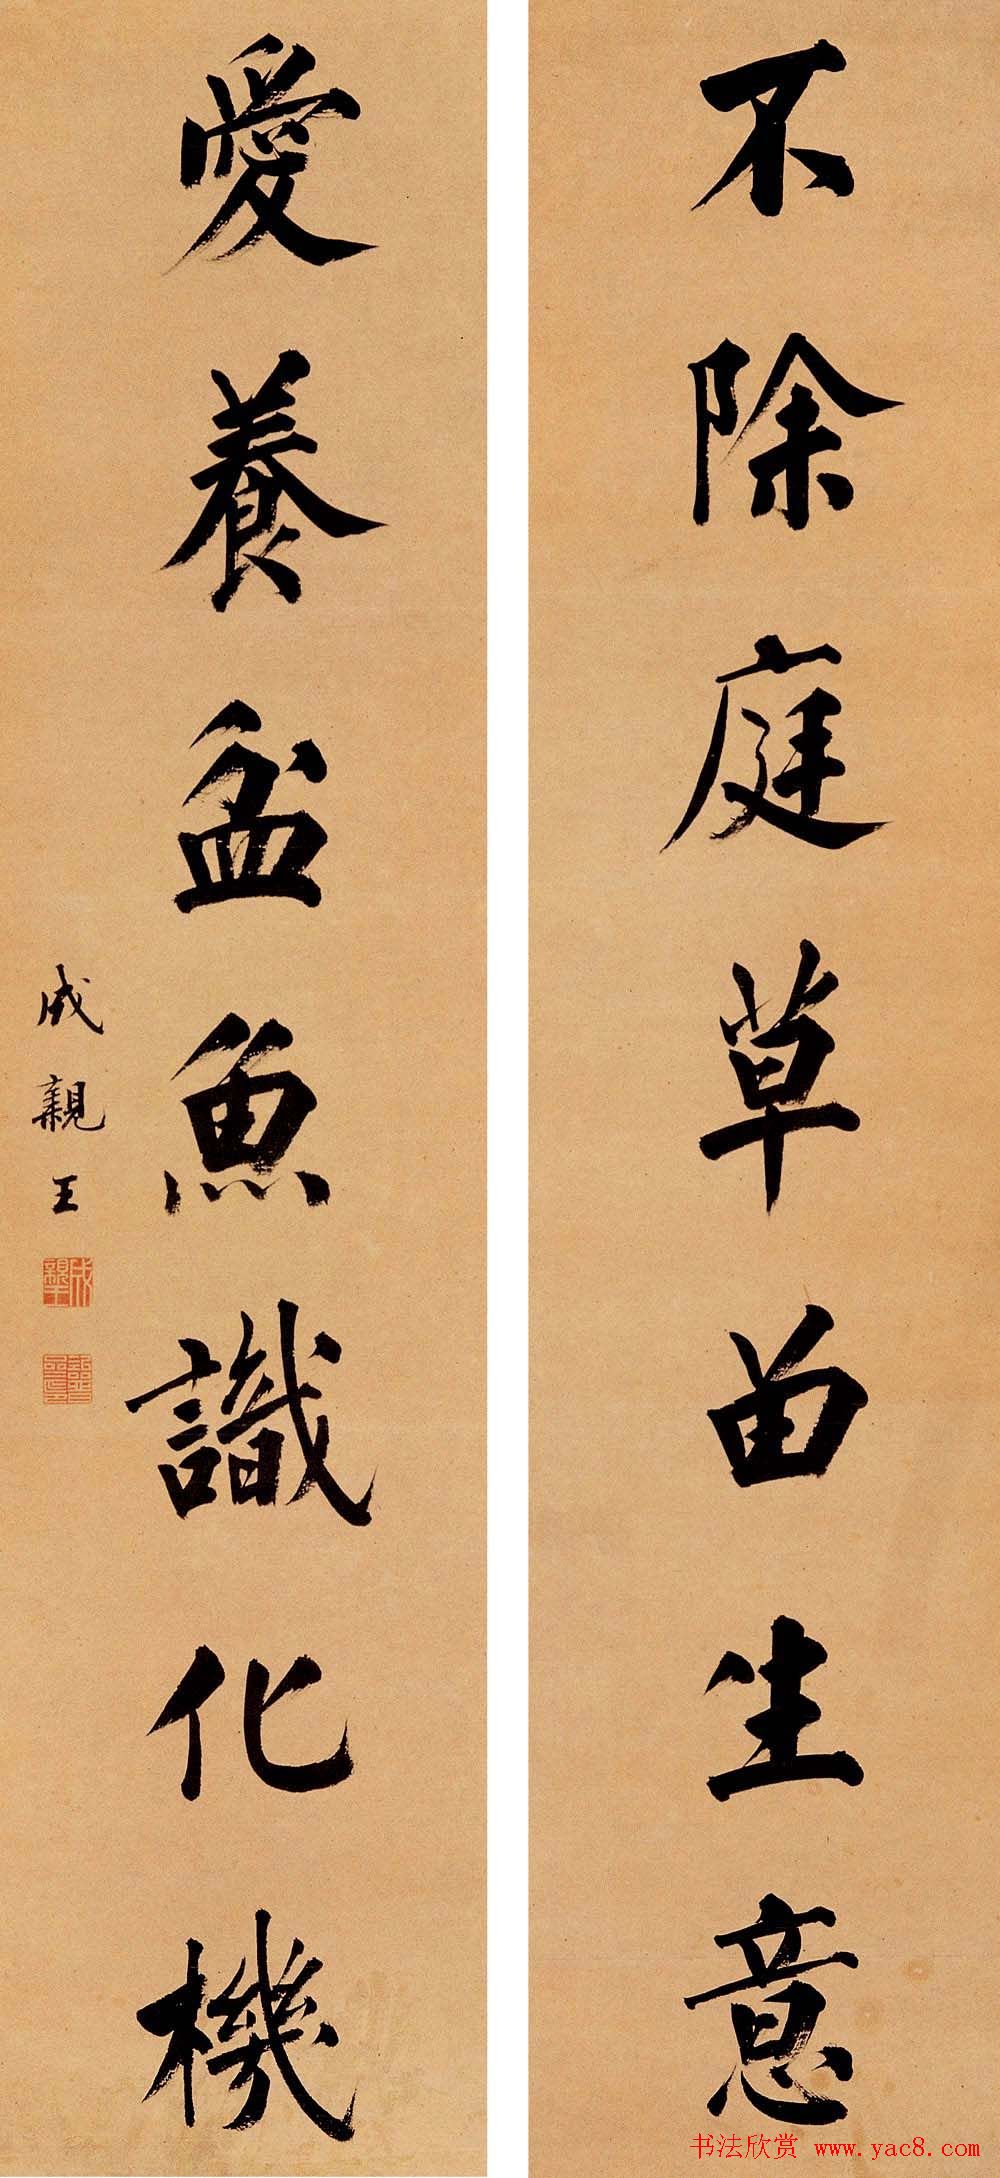 不除庭草留生意
愛養盆魚識化機
成親王
成親王
书法欣赏 www.yac8.com